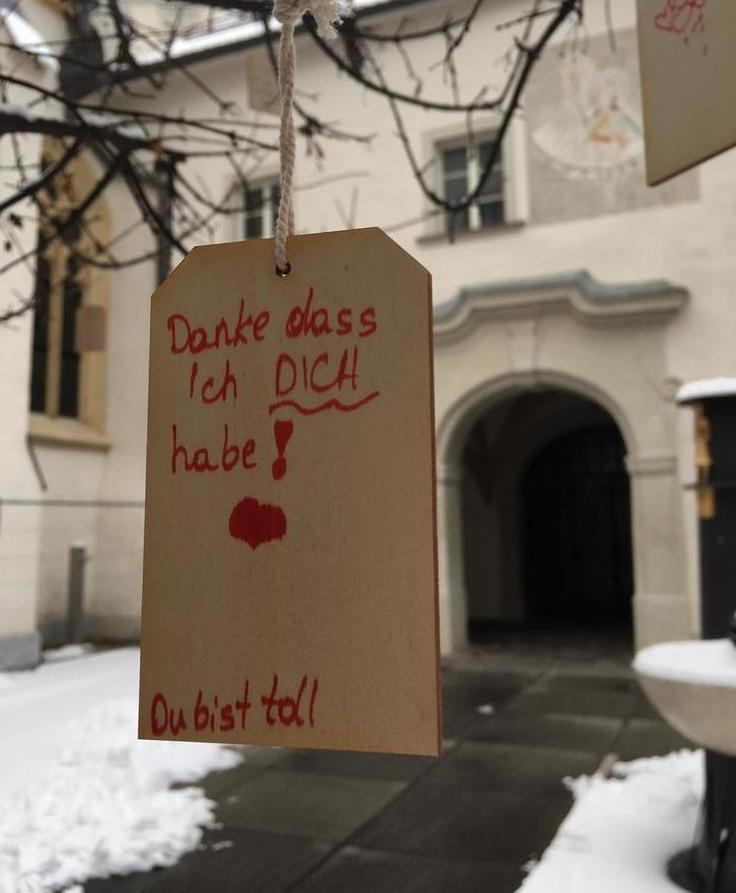 Danke dass
ich DICH
habe!
Du bist toll